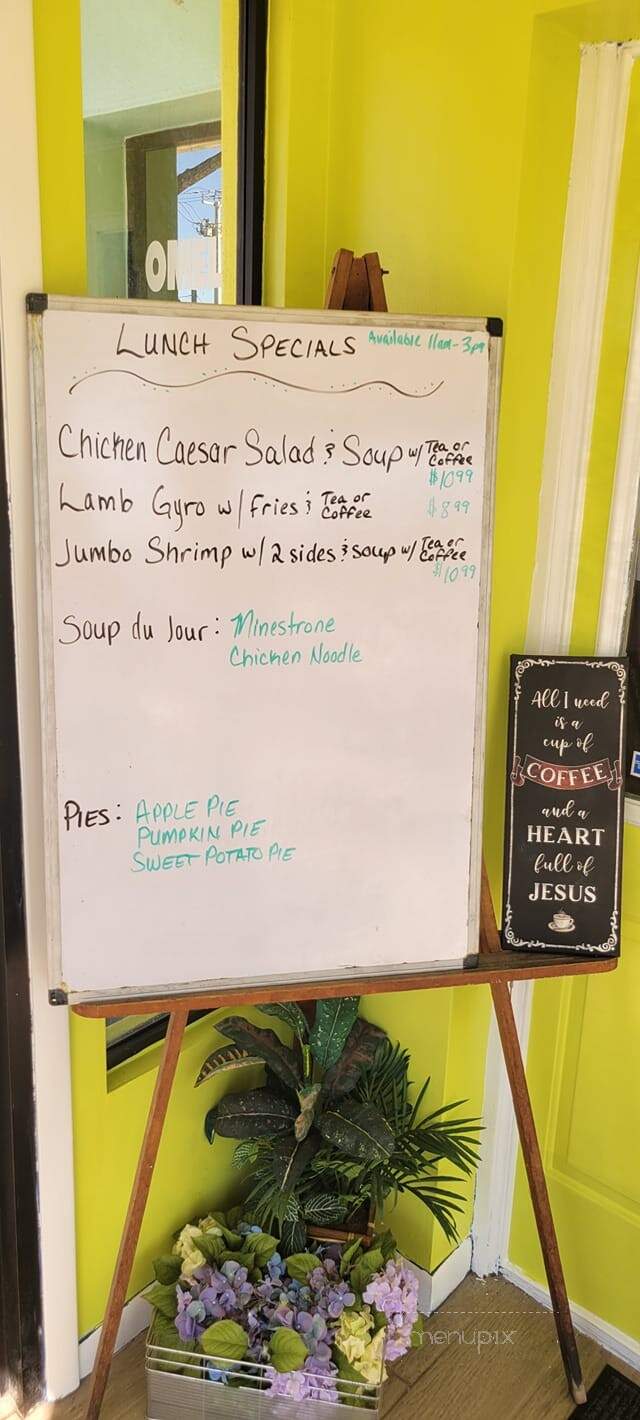 OMEL
LUNCH SPECIALS Available 11am-3pm
Chicken Caesar Salad & Soup w/ Tea or Coffee
$10.99
Lamb Gyro w/ Fries & Tea or Coffee $8.99
Jumbo Shrimp w/ 2 sides & soup w/ Tea or Coffee
$10.99
Soup du Jour: Minestrone
Chicken Noodle
PIES: APPLE PIE
PUMPKIN PIE
SWEET POTATO PIE
All I need
is a
cup of
COFFEE
and a
HEART
full of
JESUS
menupix